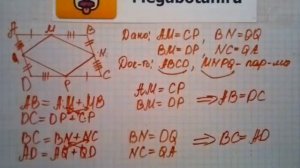 Megabotanik.ru
A M B
Q N
D P C
Дано: AM=CP, BN=DQ
BM=DP, NC=QA
Док-ть: ABCD, MNPQ-пар-мы
AB=AM+MB
DC=DP+CP
AM=CP
BM=DP
⇒ AB=DC
BC=BN+NC
AD=AQ+QD
BN=DQ
NC=QA
⇒ BC=AD